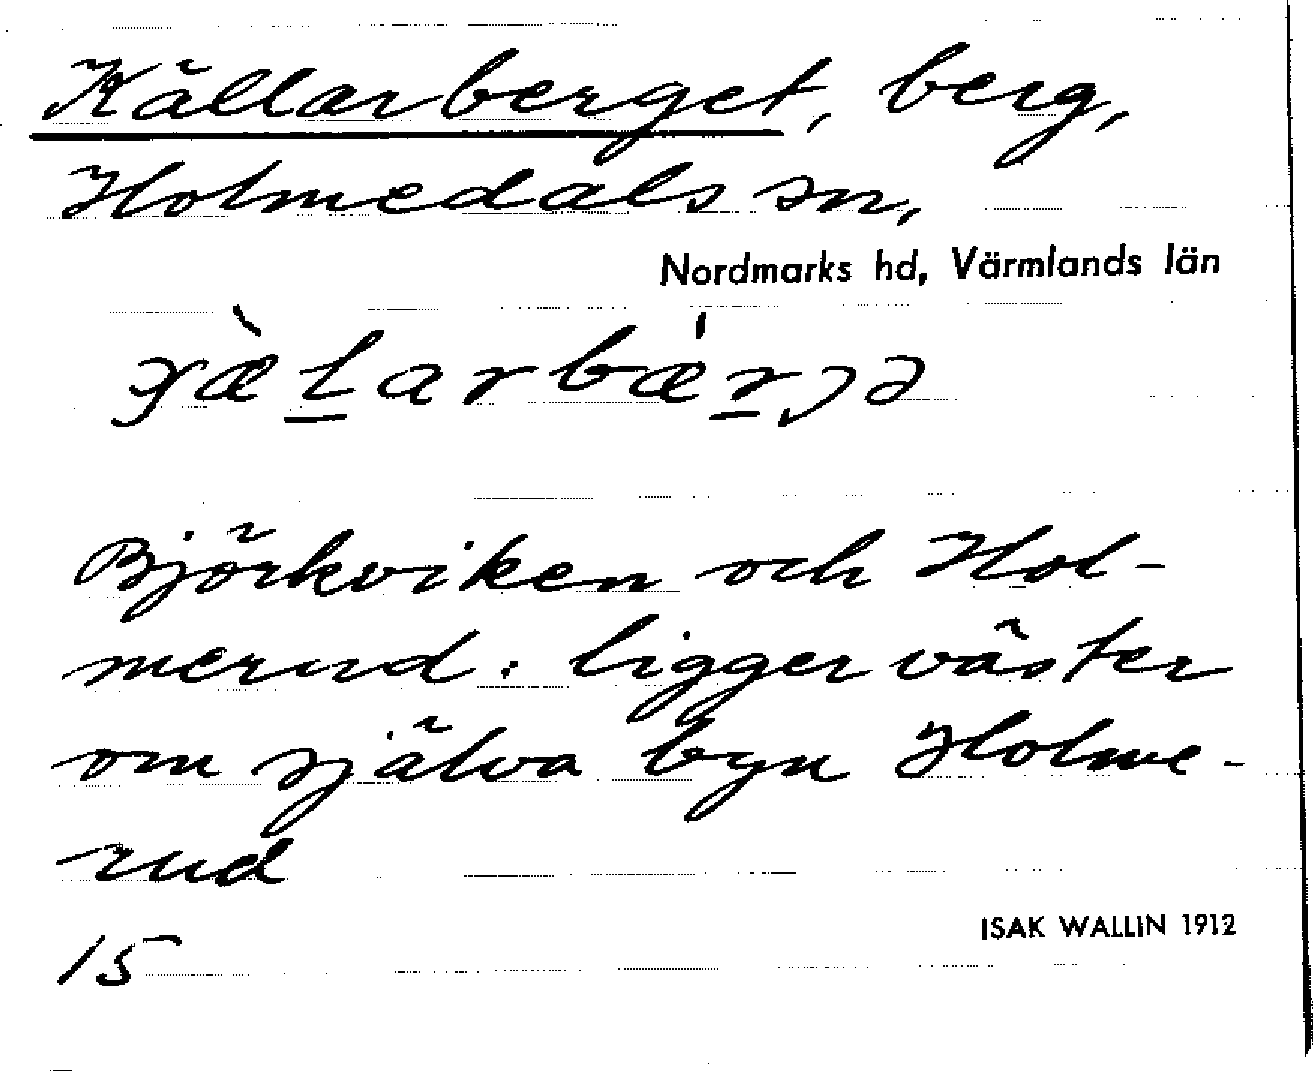 Källarberget, berg,
Holmedals sn,
Nordmarks hd, Värmlands län
Björkviken och Hol-
merud: ligger väster
om själva byn Holme-
rud
ISAK WALLIN 1912
15